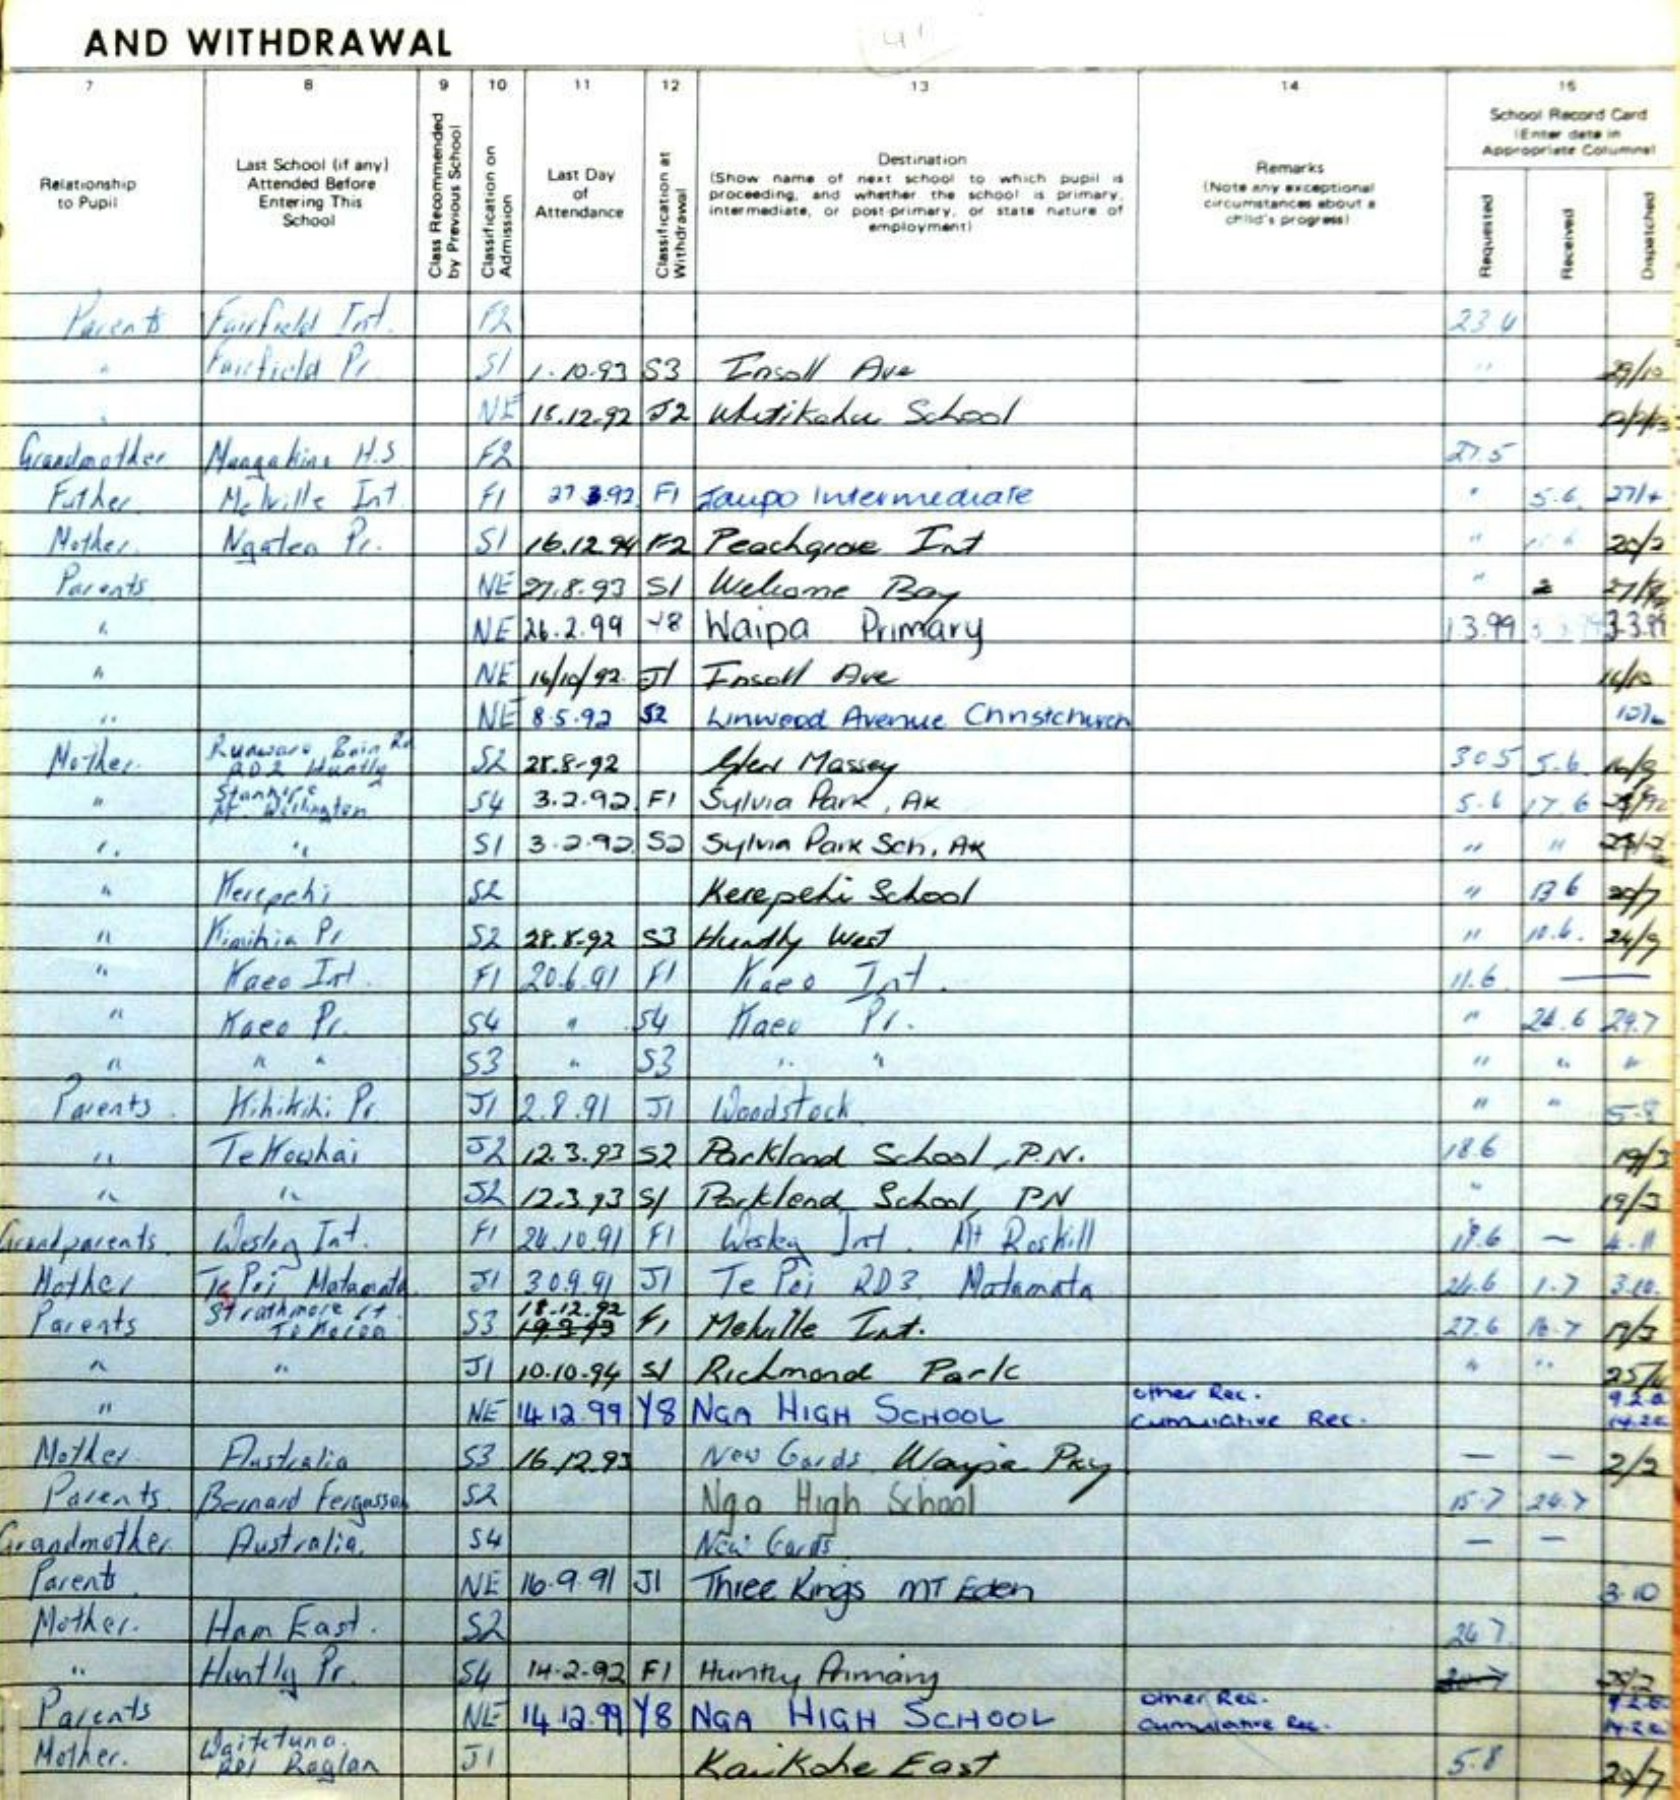 AND WITHDRAWAL
41
7 8 9 10 11 12 13 14 15
Relationship to Pupil
Last School (if any) Attended Before Entering This School
Class Recommended by Previous School
Classification on Admission
Last Day of Attendance
Classification at Withdrawal
Destination (Show name of next school to which pupil is proceeding, and whether the school is primary, intermediate, or post-primary, or state nature of employment)
Remarks (Note any exceptional circumstances about a child's progress)
School Record Card (Enter date in Appropriate Columns)
Requested Received Dispatched
Parents Fairfield Int. F2 23.6
" Fairfield Pr. S1 1.10.93 S3 Insoll Ave " 29/10
" NE 18.12.92 J2 Whitikahu School
Grandmother Mangakino H.S F2 27.5
Father. Melville Int F1 27 3.92 F1 Taupo Intermediate " 5.6
Mother. Ngatea Pr. S1 16.12.94 F2 Peachgrove Int " 20/2
Parents NE 27.8.93 S1 Welcome Bay "
" NE 26.2.99 Y8 Waipa Primary 1 3.99 3.3.99
" NE 16/10/92 J1 Insoll Ave 16/10
" NE 8.5.92 S2 Linwood Avenue Christchurch
Mother. RD2 Huntly S2 28.8-92 Glen Massey 30 5 5.6
" Mt. Wellington S4 3.2.92 F1 Sylvia Park, AK 5.6 17.6
" " S1 3.2.92 S2 Sylvia Park Sch, AK " "
" Kerepehi S2 Kerepehi School " 13 6 20/7
" Kimihia Pr S2 28.8-92 S3 Huntly West " 10.6. 24/9
" Kaeo Int. F1 20.6.91 F1 Kaeo Int. 11.6 —
" Kaeo Pr. S4 " S4 Kaeo Pr. " 24.6 29.7
" " " S3 " S3 " " " " "
Parents Kihikihi Pr. J1 2.8.91 J1 Woodstock " " 5-8
" Te Kowhai J2 12.3.93 S2 Parkland School, P.N. 18.6 19/3
" " J2 12.3.93 S1 Parklend School, PN " 19/3
Grandparents Wesley Int. F1 24.10.91 F1 Wesley Int. Mt Roskill 19.6 — 4.11
Mother Te Poi Matamata J1 30.9.91 J1 Te Poi RD3. Matamata 24.6 1.7 3.10.
Parents Strathmore S3 18.12.92 F1 Melville Int. 27.6 16.7 19/3
" " J1 10.10.94 S1 Richmond Park " "
" NE 14.12.99 Y8 NGA HIGH SCHOOL other Rec. Cumulative Rec.
Mother. Australia S3 16.12.93 New Cards Waipa Pry — — 2/2
Parents. Bernard Fergusson S2 Nga High School 15.7 24.7
Grandmother Australia. S4 New Cards — —
Parents NE 16.9.91 J1 Three Kings MT Eden 3.10
Mother. Ham East. S2 24 7
" Huntly Pr. S4 14.2.92 F1 Huntly Primary 25/2
Parents NE 14.12.99 Y8 NGA HIGH SCHOOL other Rec. Cumulative Rec.
Mother. Waitetuna. RD1 Raglan J1 Kaikohe East 5.8 20/7